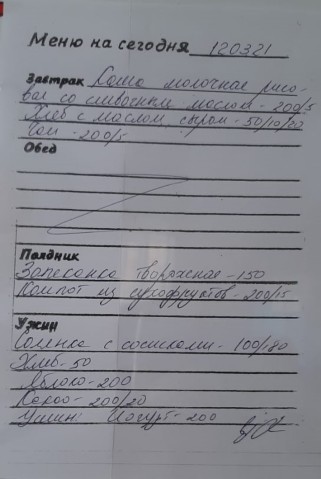 Меню на сегодня 120321
Завтрак Каша молочная рисо-
вая со сливочным маслом - 200/5
Хлеб с маслом, сыром - 50/10/20
Чай - 200/5
Обед
Полдник
Запеканка творожная - 150
Компот из сухофруктов - 200/15
Ужин
с сосисками - 100/80
Хлеб - 50
Яблоко - 200
Какао - 200/20
Ужин: Йогурт - 200